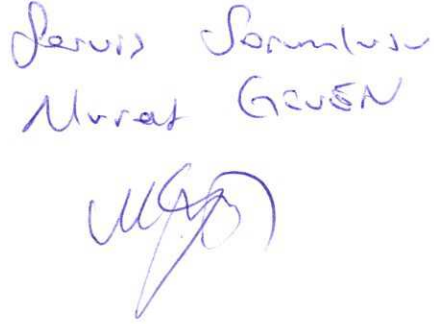 Servis Sorumlusu
Murat GÜVEN